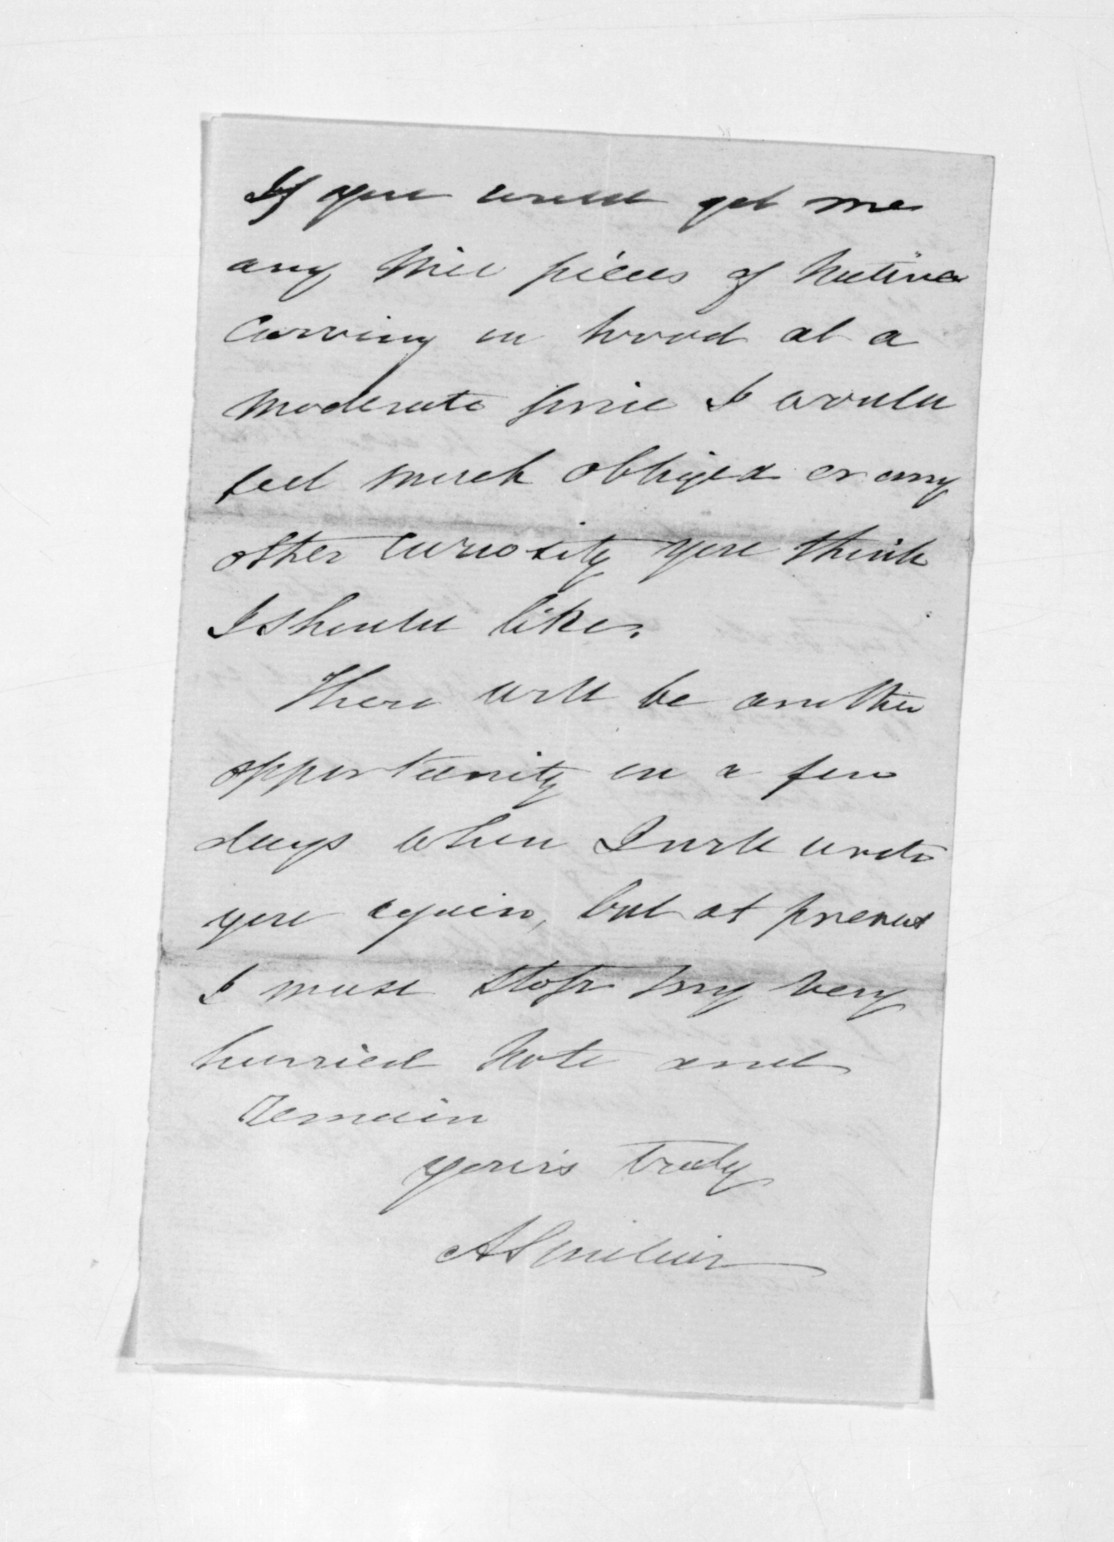 If you could get me
any Nice pieces of Native
Carving in wood at a
moderate price I would
feel much obliged or any
other curiosity you think
I should like.
There will be another
opportunity in a few
days when I will write
you again, but at present
I must stop my very
hurried Note and
Remain
yours truly